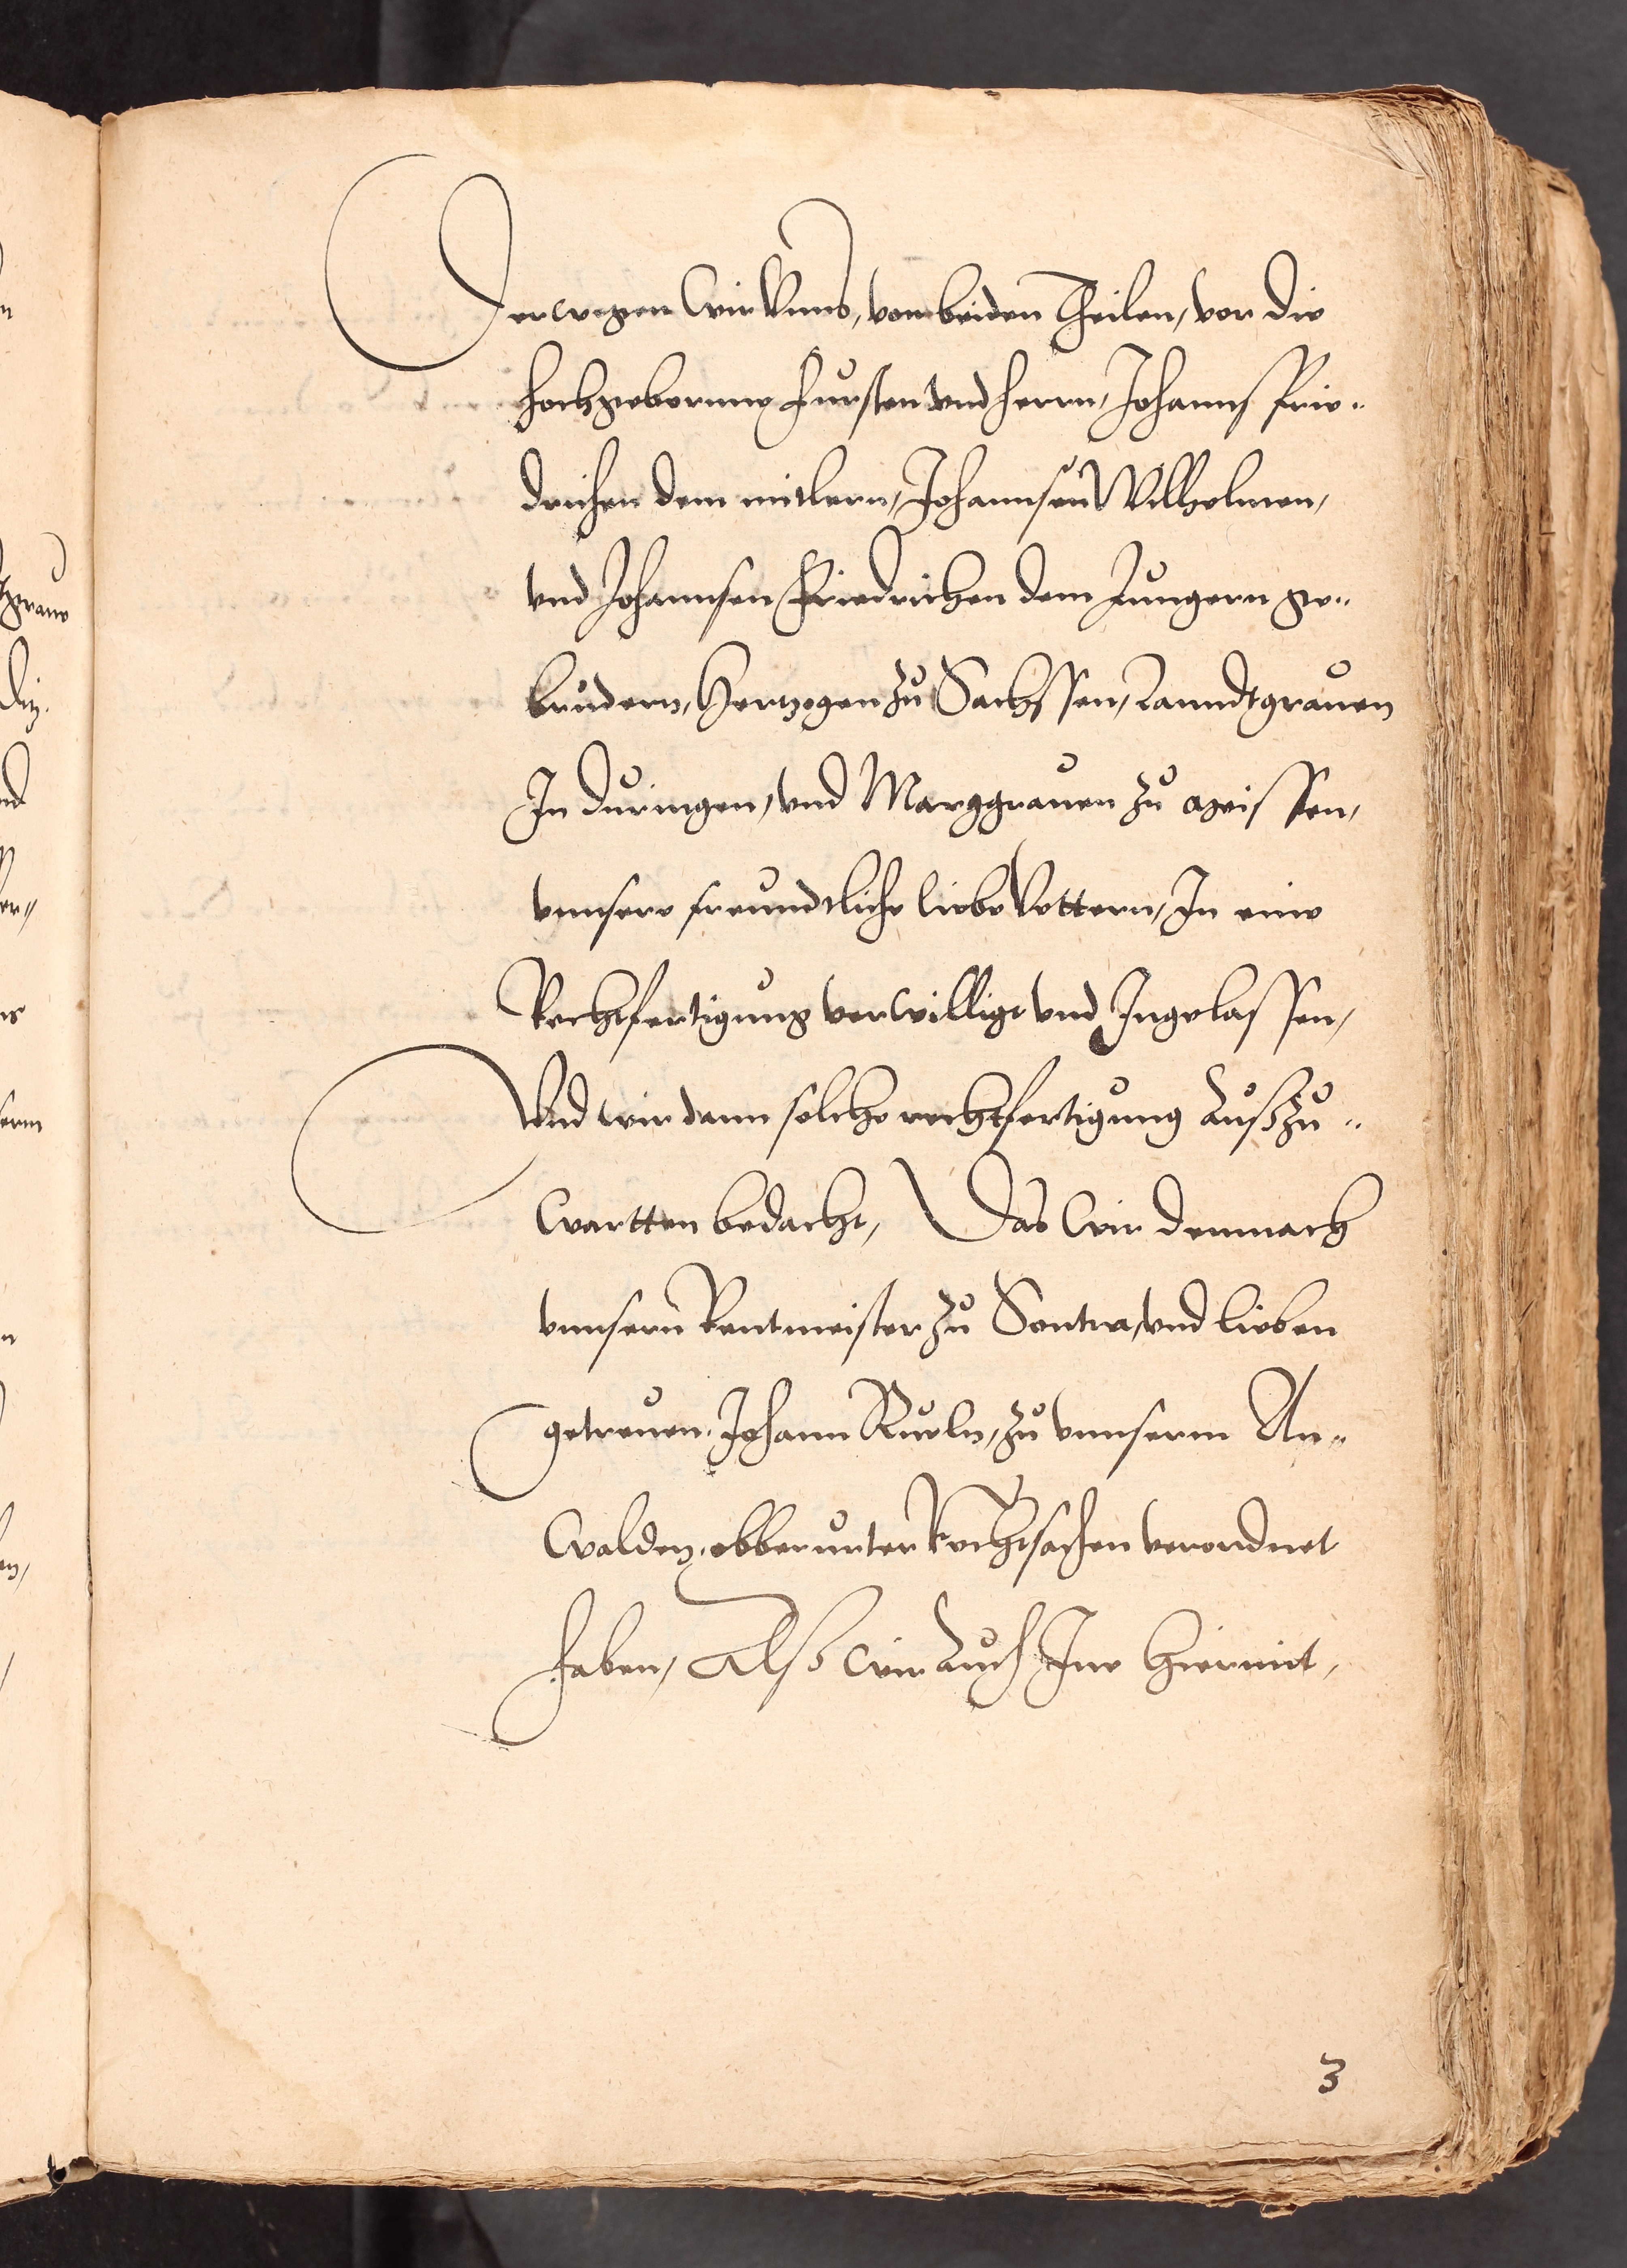 Derwegen wir vnns, von beiden Theilen, vor die
hochgeborune Fursten vnd herrn, Johanns Frie„
drichen dem mitlern, Johannsen Wilhelmen,
vnd Johannsen Friedrichen dem Jungern ge„
brudern, Hertzogen zu Sachssen, Lanndtgrauen
In duringen, vnd Marggrauen zu Meissen,
vnnsere freundtliche liebe Vettern, In eine
Rechtfertigung verwilligt vnd Ingelassen,
Vnd wir dann solche rechtfertigung Außzu„
wartten bedacht, Das wir demnach
vnnsern Rentmeister zu Sontra, vnd lieben
getreuen. Johann Rueln, zu vnnserm An„
walden, obberurter Rechtsachen verordnet
haben, Also wir Auch Ine hiermit,
3